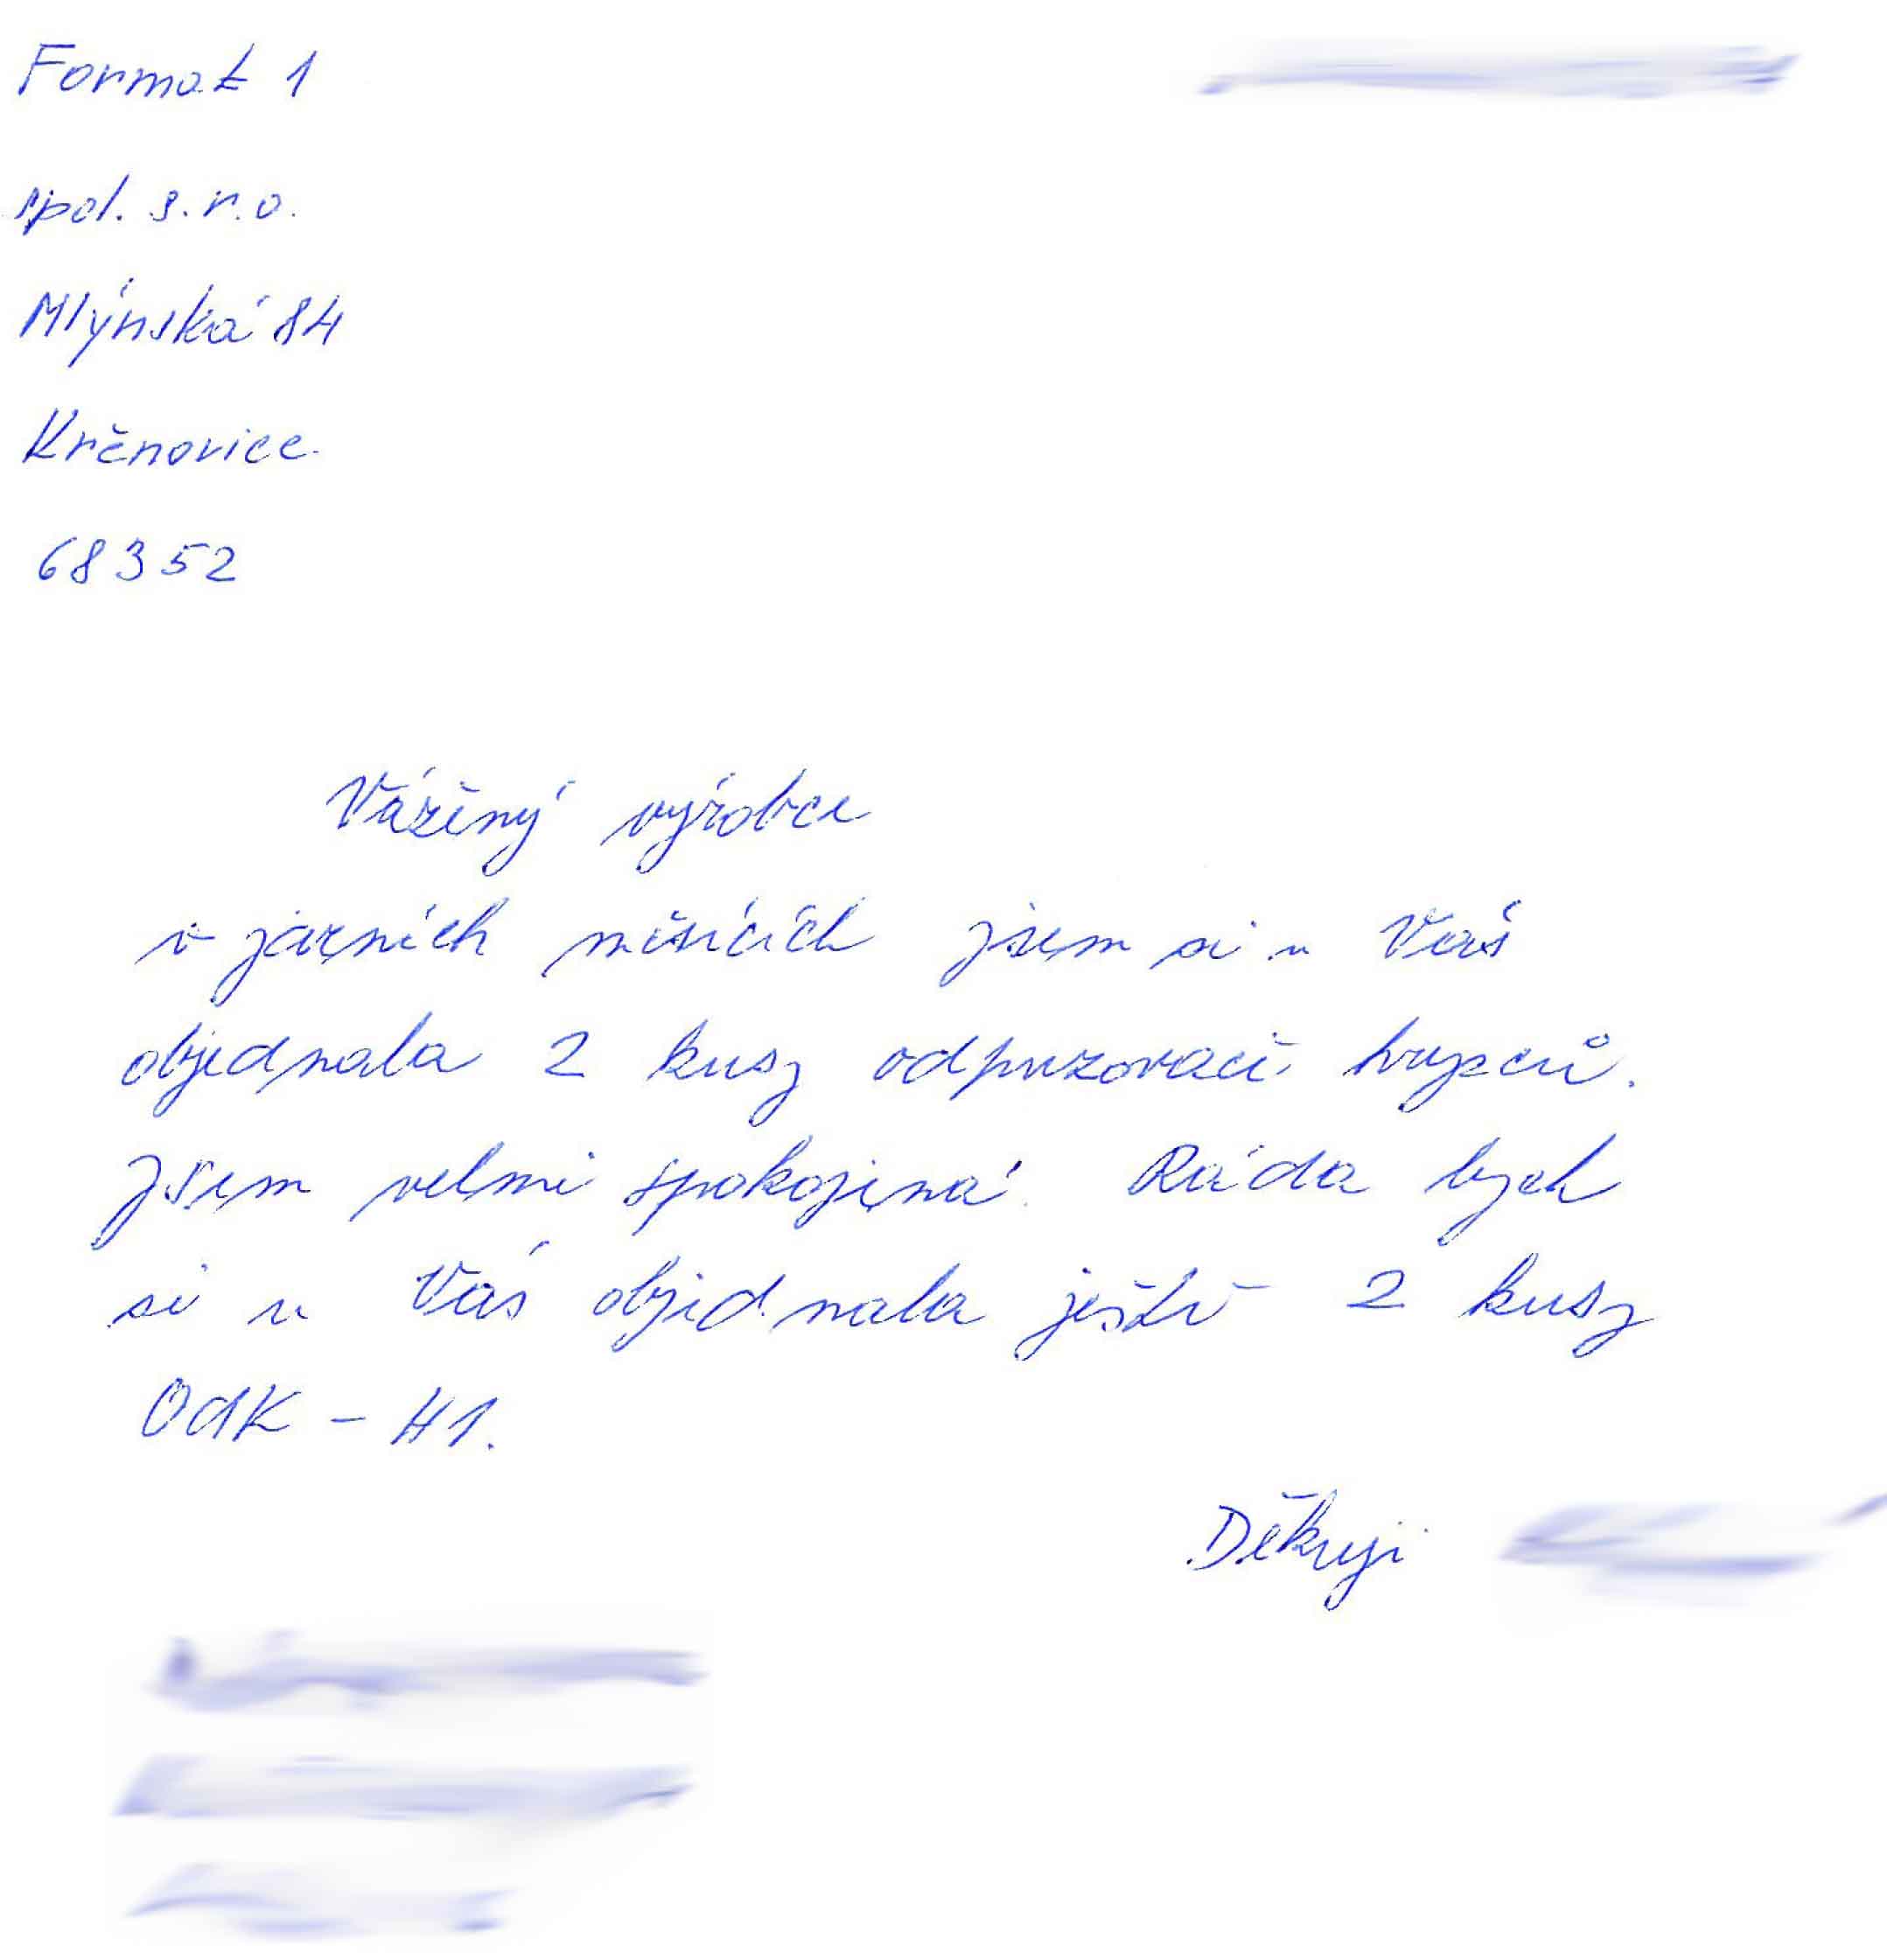 Format 1
spol. s.r.o.
Mlýnská 84
Krěnovice
68352
Vážený výrobce
v jarních měsících jsem si u Vás
objednala 2 kusy odpuzovačů hryzců.
Jsem velmi spokojená. Ráda bych
si u Vás objednala ještě 2 kusy
OdK - H1.
Děkuji